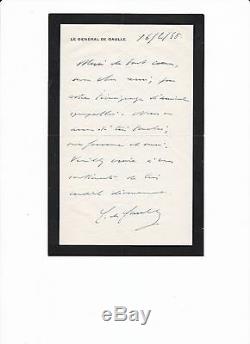 LE GÉNÉRAL DE GAULLE
16/2/55
Merci de tout cœur,
mon cher ami, pour
votre témoignage d'amicale
sympathie. Nous en
avons été très touchés,
ma femme et moi.
Veuillez croire à mes
sentiments de bien
cordial dévouement.
C. de Gaulle